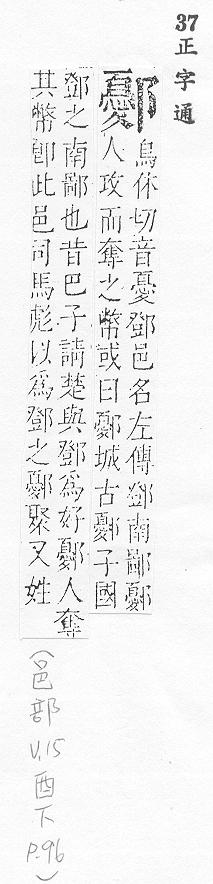 37 正字通
鄾 烏休切音憂鄧邑名左傳鄧南鄙鄾
人攻而奪之幣或曰鄾城古鄾子國
鄧之南鄙也昔巴子請楚與鄧爲好鄾人奪
其幣卽此邑司馬彪以爲鄧之鄾聚又姓
(邑部 V.15 酉下 P.96)